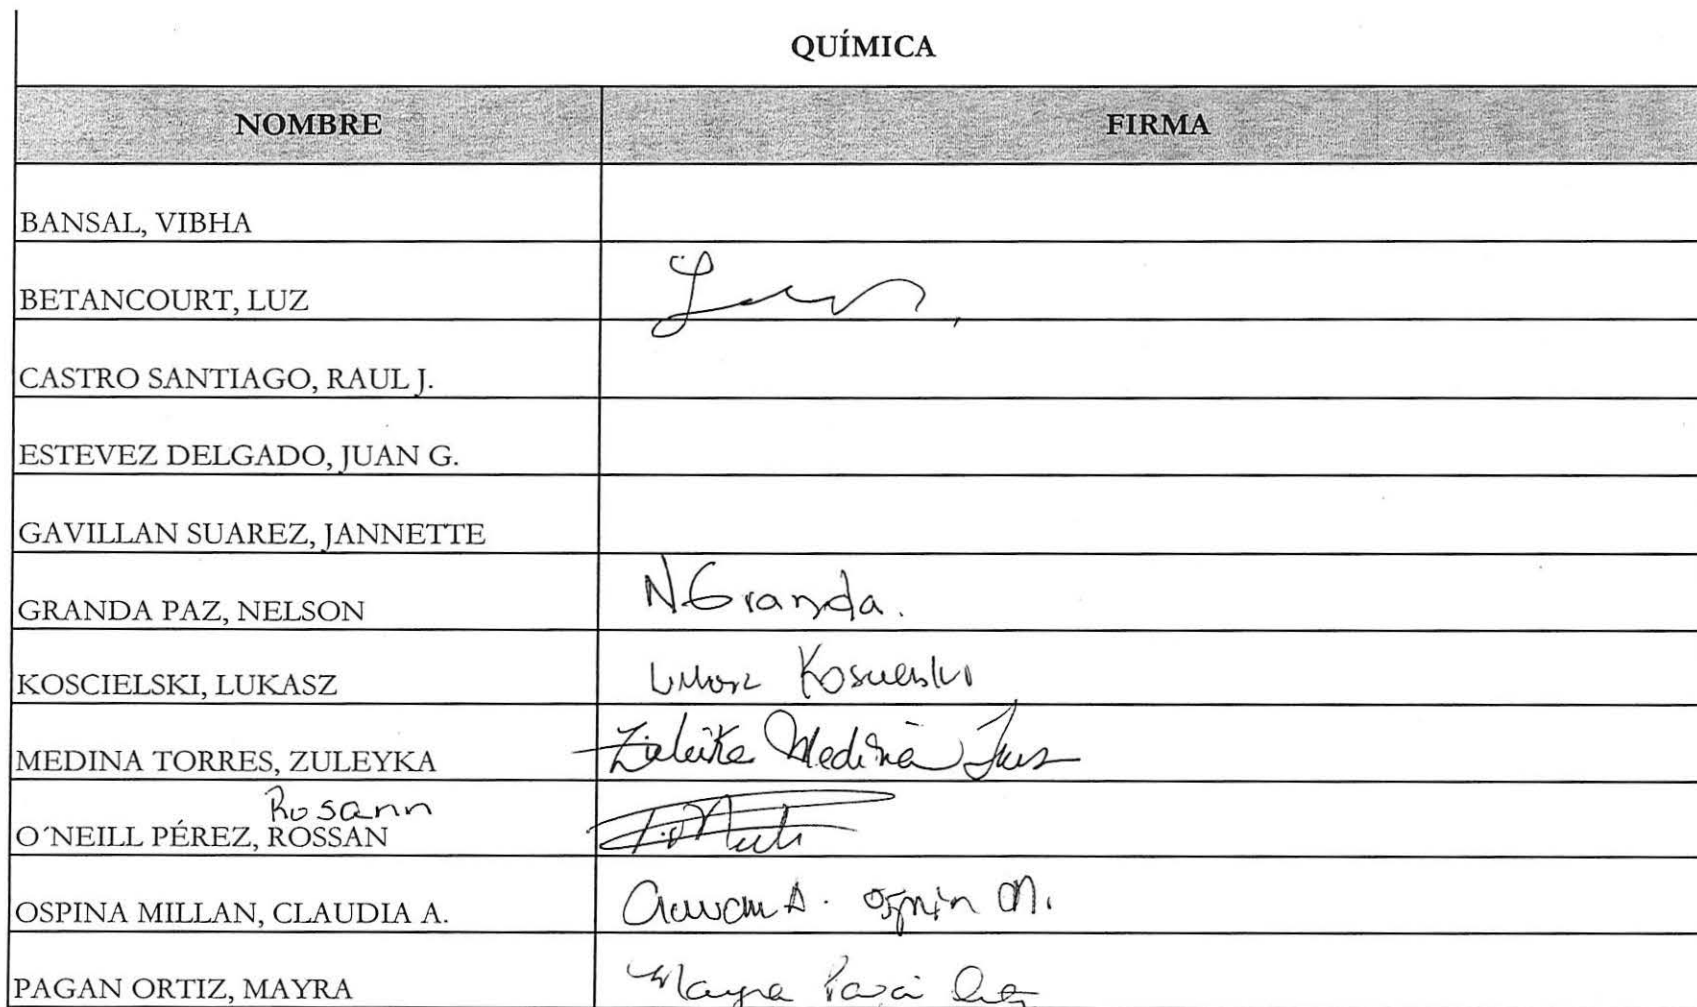 QUÍMICA
NOMBRE FIRMA
BANSAL, VIBHA
BETANCOURT, LUZ
CASTRO SANTIAGO, RAUL J.
ESTEVEZ DELGADO, JUAN G.
GAVILLAN SUAREZ, JANNETTE
GRANDA PAZ, NELSON N Granda.
KOSCIELSKI, LUKASZ
MEDINA TORRES, ZULEYKA Medina
Rosann
O´NEILL PÉREZ, ROSSAN
OSPINA MILLAN, CLAUDIA A.
PAGAN ORTIZ, MAYRA Mayra